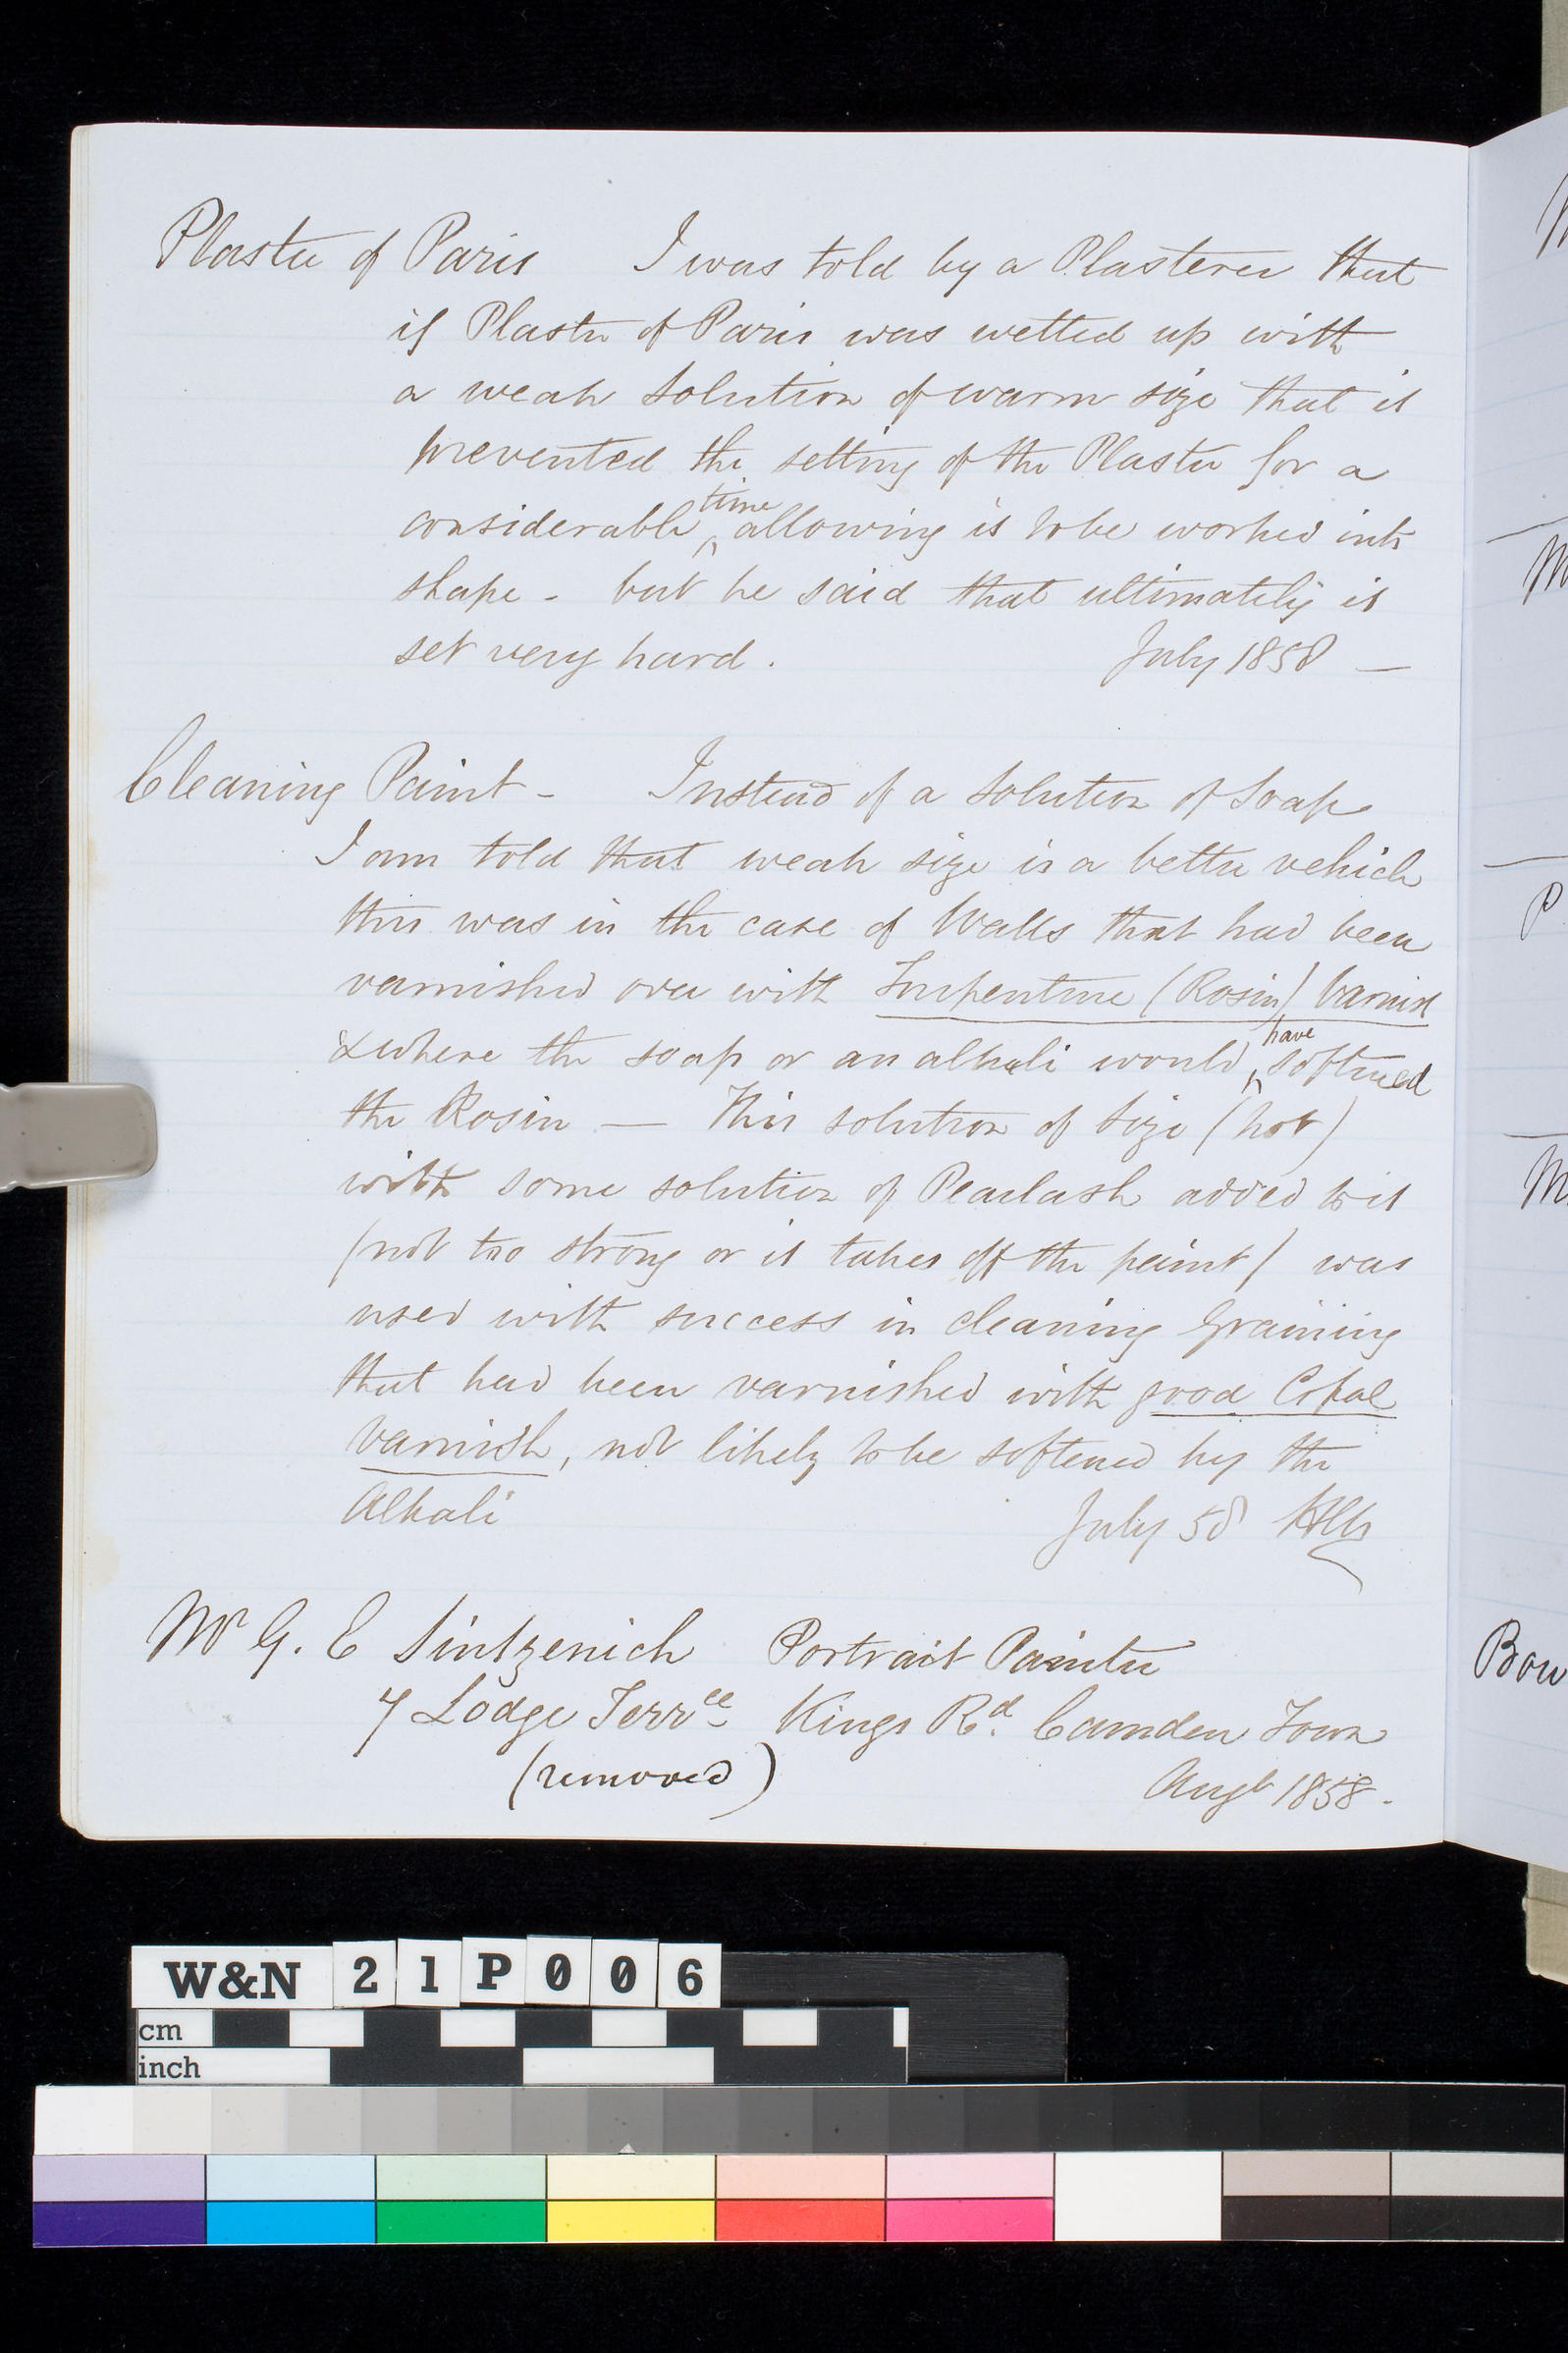 Plaster of Paris I was told by a Plasterer that
if Plaster of Paris was wetted up with
a weak solution of warm size that it
prevented the setting of the Plaster for a
considerable time allowing it to be worked into
shape - but he said that ultimately it
set very hard. July 1858 —
Cleaning Paint - Instead of a solution of Soap
I am told that weak size is a better vehicle
this was in the case of Walls that had been
varnished over with Turpentine (Rosin) Varnish
& where the soap or an alkali would have softened
the Rosin — This solution of Size (hot)
with some solution of Pearlash added to it
(not too strong or it takes off the paint) was
used with success in cleaning Graining
that had been varnished with good Copal
Varnish, not likely to be softened by the
Alkali July 58
Mr G. E Sintzenich Portrait Painter
7 Lodge Terrce Kings Rd. Camden Town
(removed) Augt 1858.
Bow
W&N 21P006
cm
inch